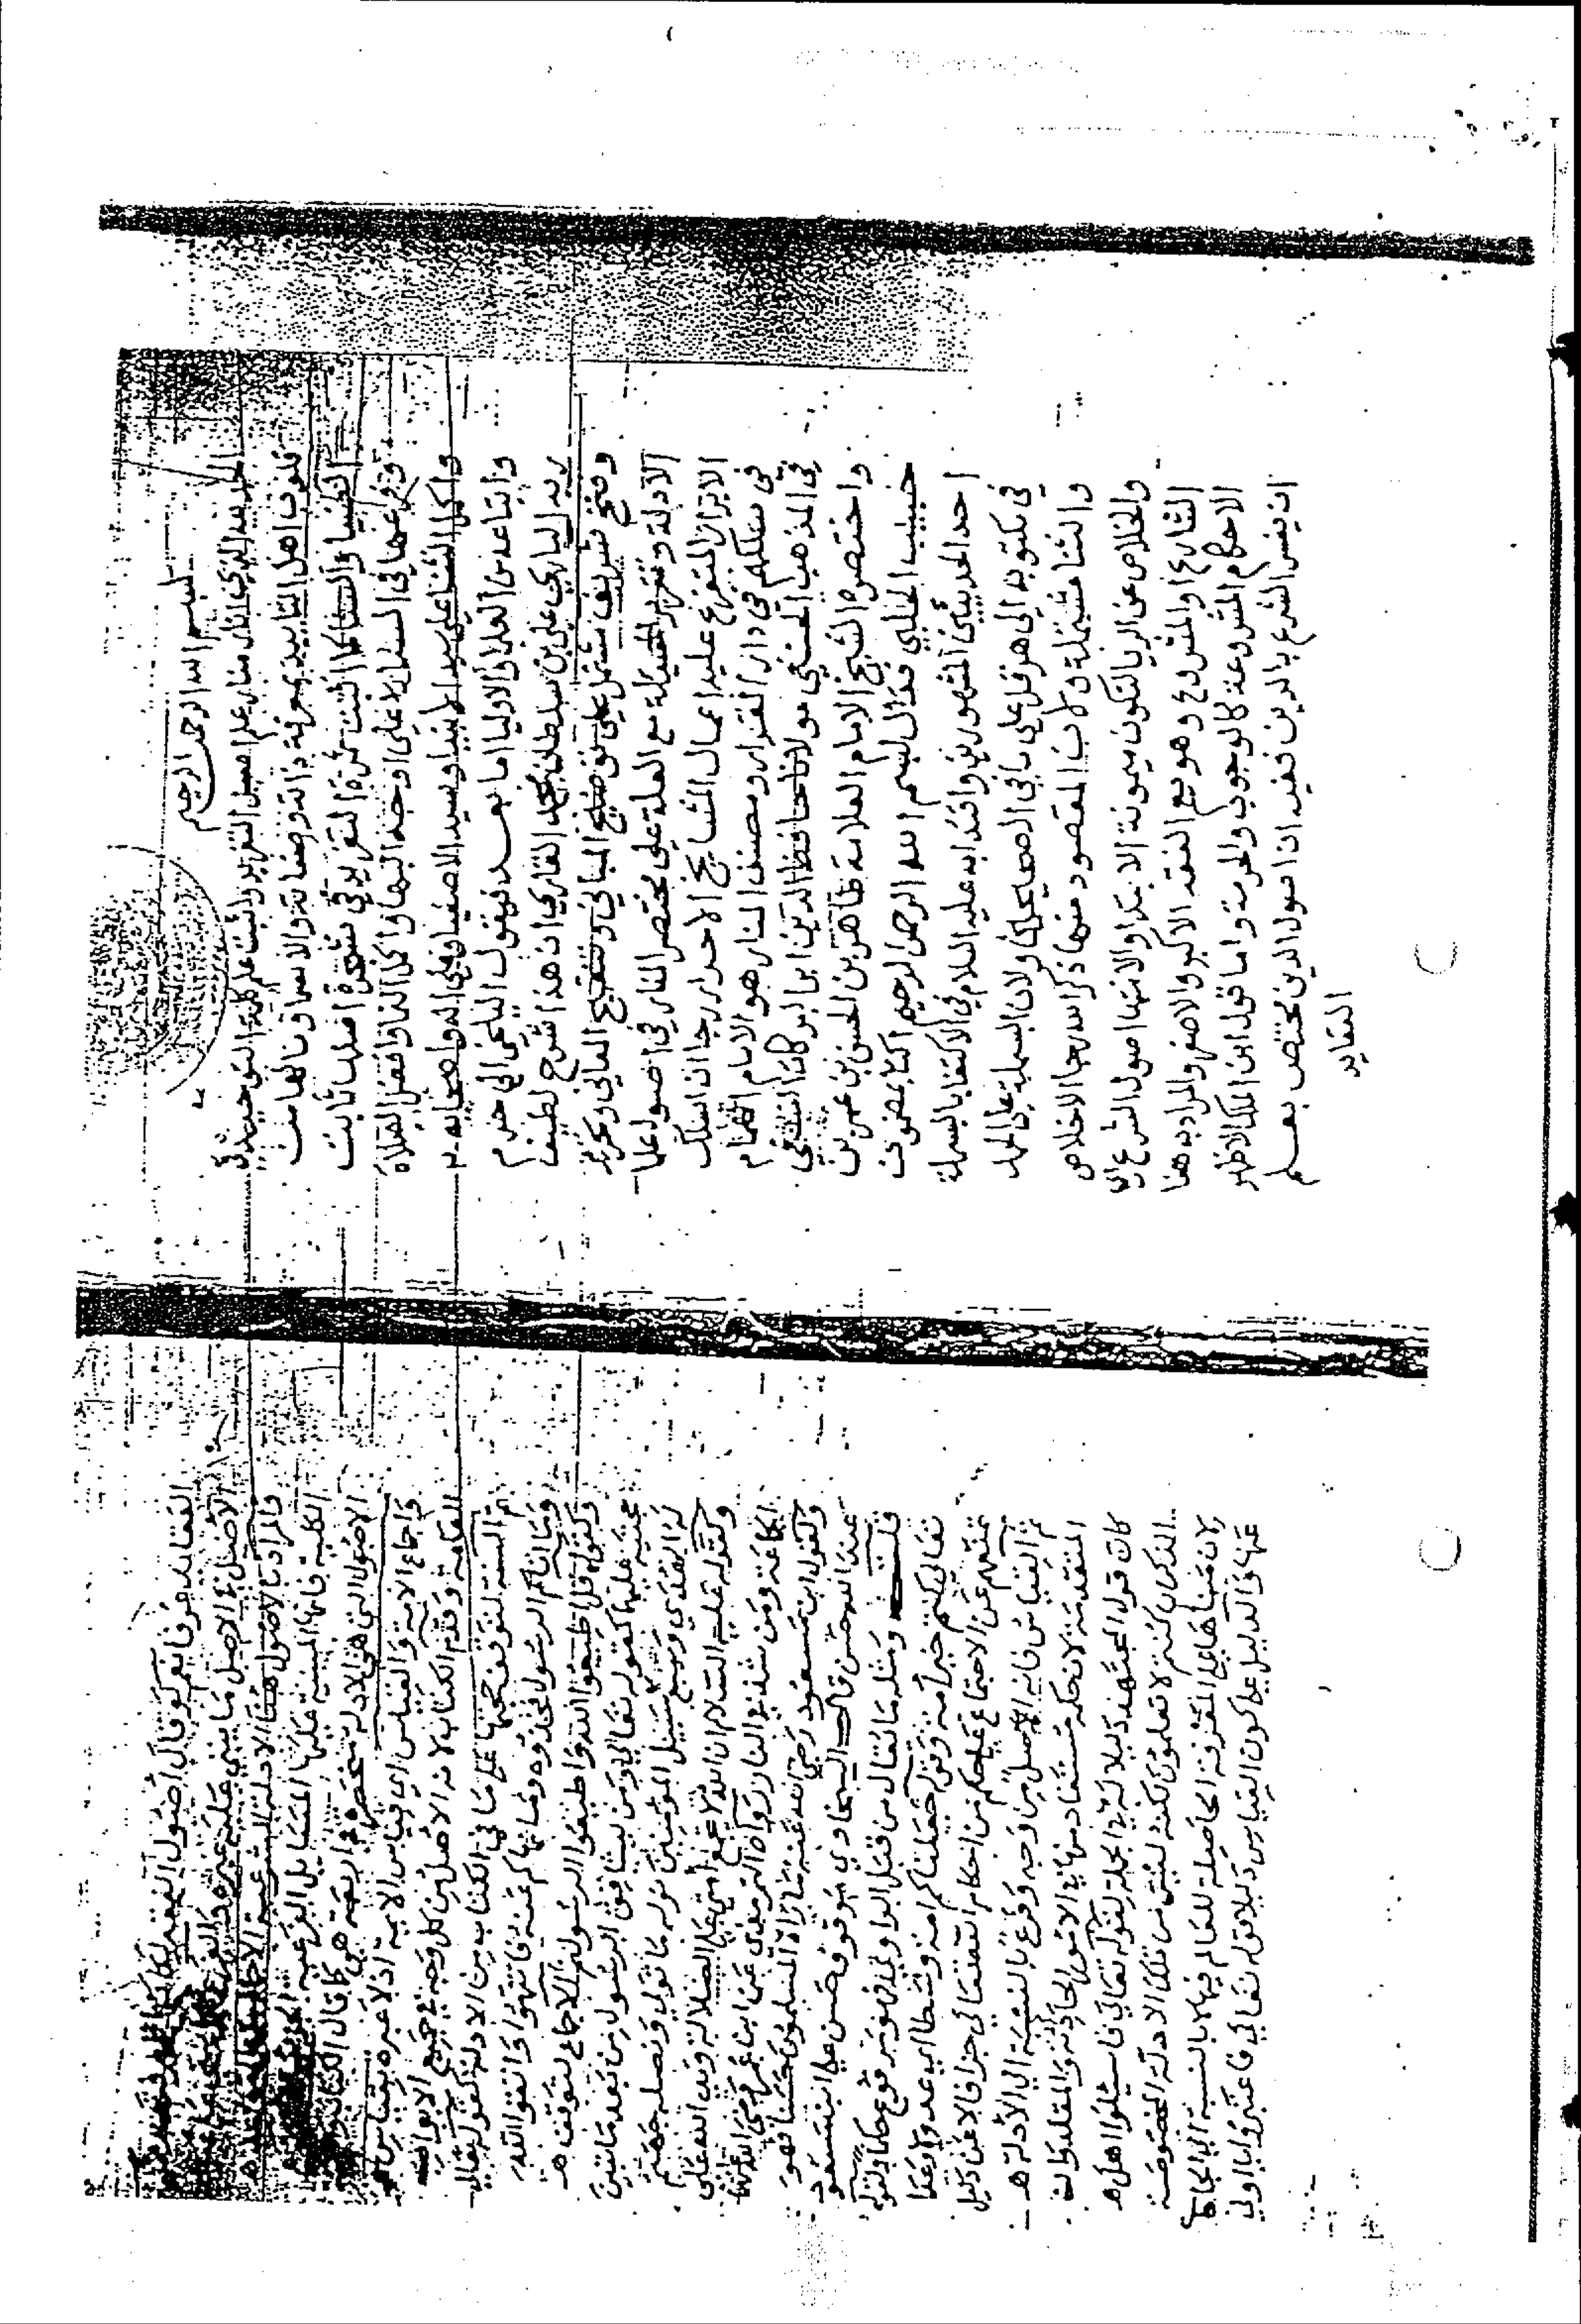 بسم الله الرحمن الرحيم
الحمد لله الذي انار منار علم اصول التقرير واثبت علم كلمة التوحيد في
قلوب اهل التاييد بمعرفة ذاته وصفاته والاسماء ونالها من
النقيا والسنا كما اثبت ثمرة التقريد في شجرة اصلها ثابت
وفرعها في السماء على اوجه البها واكمل الثنا وافضل الصلاة
واكمل الثنا على سيد الانبيا وسيد الاصفيا وعلى اله واصحابه
واتباعه من العلما والاوليا اما بعد فيقول الملتجي الى حرم
ربه الباري علي بن سلطان محمد القاري ان هذا شرح لطيف
وفتح شريف مشتمل على توضيح المباني وتنقيح المعاني وتحرير
الادلة وتقرير الحيثية مع العلة على مختصر المنار في اصول علما
الابرار المتفرع عليه اعمال المشايخ الاحرار رجا ان اسلك
في سلكهم في دار القرار ومصنف المنار هو الامام الهمام
في المذهب الحنفي مولانا حافظ الدين ابو البركات النسفي
واختصره الشيخ الامام العلامة طاهر بن الحسن بن عمر بن
حبيب الحلبي فقال بسم الله الرحمن الرحيم اكتفا بمضمون
احد الحديثين المشهورين واقتدا به عليه السلام في الاكتفا بالبسملة
في مكتوبه الى هرقل على ما في الصحيحين ولان البسملة على الحمد
والثنا مشتملة ولان المقصود منها ذكر الله رجا الاخلاص
والخلاص عن الريا لتكون ميمونة الابتدا والانتها اصول الشرع اي
الشارع او المشروع وهو يعم الفقه الاكبر والاصغر والمراد به هنا
الاحكام المشروعة كالوجوب والحرمة واما قول ابن الملك الاظهر
ان يفسر الشرع بالدين ففيه ان اصول الدين مختص بعلم
العقايد
العقايد عرفا نعم لو قال اصول الفقه
الاصل في الاصل ما يبني عليه غيره
والمراد بالاصول هنا الادلة الشرعية
الكلية فانها المبنية عليها المسايل الفرعية
الاصول التي هي الادلة تنحصر في اربعة هي كما قال الكتاب
واجماع الامة والقياس اي قياس الايمة اذ لا عبرة بقياس
العامة وقدم الكتاب لانه الاصل من كل وجه في جميع الابواب
ثم السنة لتوقف حجتها على ما في الكتاب من الادلة كقوله تعالى
وما اتاكم الرسول فخذوه وما نهاكم عنه فانتهوا واتقوا الله
وكقوله قل اطيعوا الله واطيعوا الرسول ثم الاجماع لتوقف
حجيته عليها كقوله تعالى ومن يشاقق الرسول من بعد ما تبين
له الهدى ويتبع غير سبيل المؤمنين نوله ما تولى ونصله جهنم
وكقوله عليه السلام ان الله لا يجمع امتي على الضلالة ويد الله على
الجماعة ومن شذ شذ في النار رواه الترمذي عن ابن عمر رضي الله عنهما
ولقول ابن مسعود رضي الله عنه ما راه المسلمون حسنا فهو
عند الله حسن قال السخاوي موقوف حسن على ابن مسعود
قلت ومثله ما يقال من قبل الراي فهو مرفوع حكما ولقوله
تعالى كنتم خير امة وقوله جعلناكم امة وسطا اي عدولا
تمنعهم عن الاجتماع على حكم من احكام الله تعالى جزافا لا عن دليل
ثم القياس فانه اصل من وجه وفرع بالنسبة الى الادلة
المتقدمة لان حكمه مستفاد منها في الامور الحادثة والمقلد وان
كان قول المجتهد دليلا له في الجملة لقوله تعالى فاسئلوا اهل
الذكر ان كنتم لا تعلمون لكنه ليس من تلك الادلة المخصوصة
لان مبناها على المعرفة الحاصلة للعالم فيها لا بالنسبة الى الجاهل
عنها والدليل على كون القياس دليلا قوله تعالى فاعتبروا يا اولي